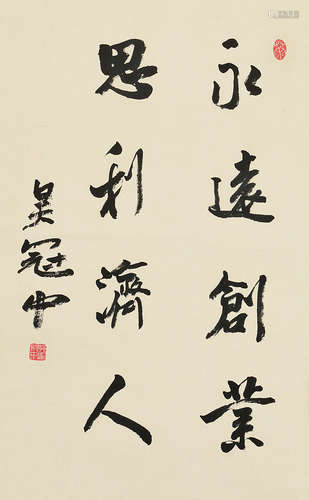 永遠創業
思利濟人
吴冠中